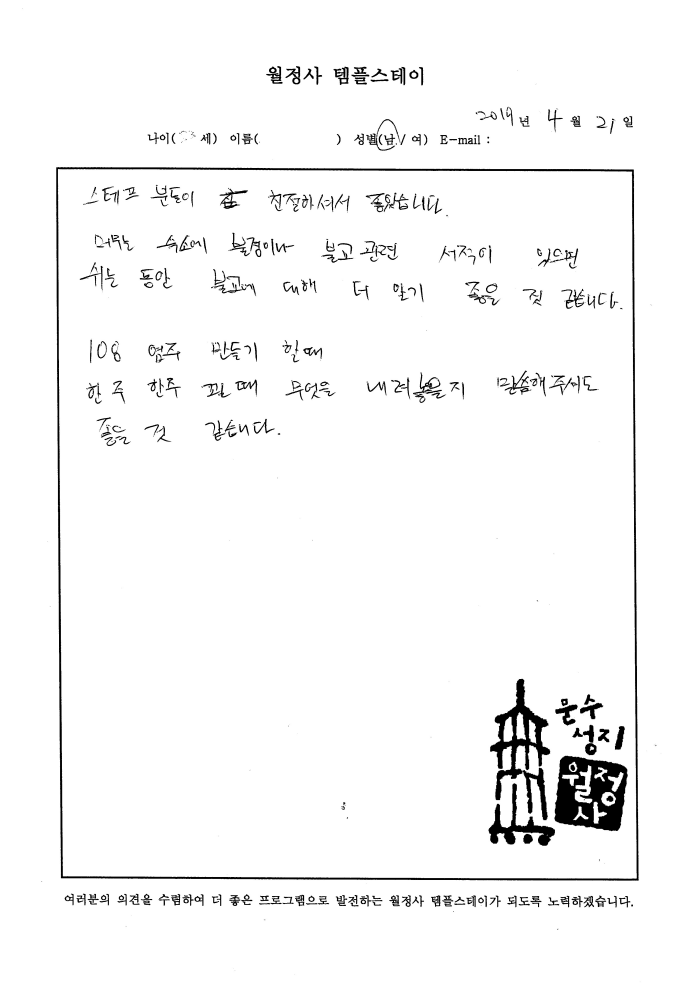 월정사 템플스테이
2019년 4월 21일
나이( 세) 이름( ) 성별(남/여) E-mail :
스테프 분들이 참 친절하셔서 좋았습니다.
머무는 숙소에 불경이나 불교 관련 서적이 있으면
쉬는 동안 불교에 대해 더 알기 좋을 것 같습니다.
108 염주 만들기 할때
한 주 한주 꿸 때 무엇을 내려놓을지 말씀해주셔도
좋을 것 같습니다.
문수
성지
월정
사
여러분의 의견을 수렴하여 더 좋은 프로그램으로 발전하는 월정사 템플스테이가 되도록 노력하겠습니다.